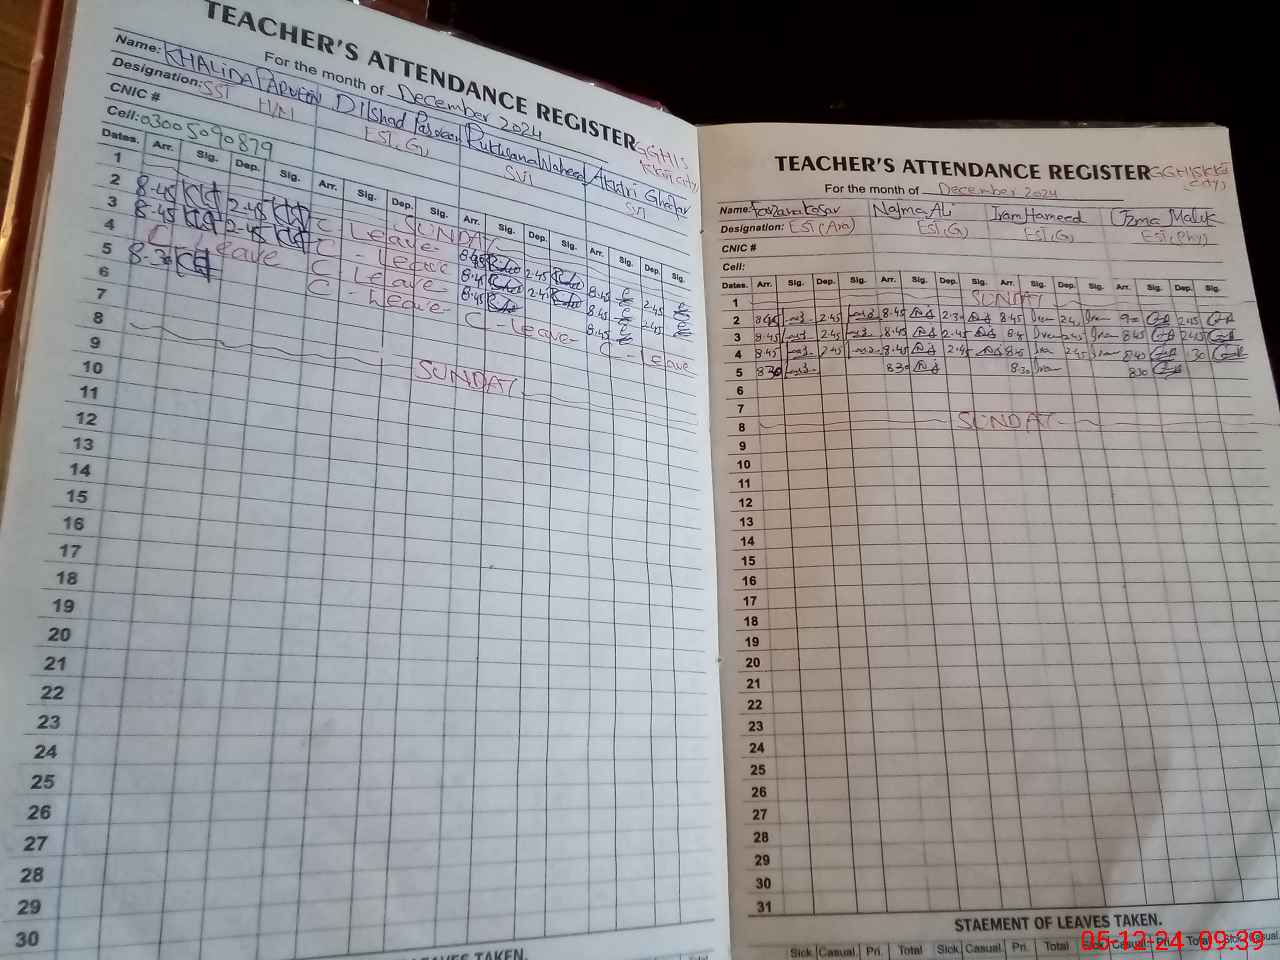 TEACHER'S ATTENDANCE REGISTER GGHIS
For the month of December 2024
Name: KHALIDA PARVEEN Dilshad Parveen Rukhsana Waheed Akhtri Ghafar
Designation: SST H/M EST, G, SVT SVT
CNIC #
Cell: 03005090879
Dates. Arr. Sig. Dep. Sig. Arr. Sig. Dep. Sig. Arr. Sig. Dep. Sig. Arr. Sig. Dep. Sig.
1 SUNDAY
2 8.45 2.45 C Leave 8.45 2.45 8.45 2.45
3 8.45 2.45 C - Leave 8.45 2.45 8.45 2.45
4 C Leave C Leave 8.45 8.45
5 8.30 C - Leave C - Leave C - Leave
6
7
8 SUNDAY
9
10
11
12
13
14
15
16
17
18
19
20
21
22
23
24
25
26
27
28
29
30
TAKEN.
TEACHER'S ATTENDANCE REGISTER GGHIS
For the month of December 2024
Name: Fouzana Kosar Najma Ali Iram Hameed Uzma Maluk
Designation: EST (Ara) EST, G, EST, G, EST, Phy,
CNIC #
Cell:
Dates. Arr. Sig. Dep. Sig. Arr. Sig. Dep. Sig. Arr. Sig. Dep. Sig. Arr. Sig. Dep. Sig.
1 SUNDAY
2 8.45 2.45 8.45 2.30 8.45 Iram Iram 2.45
3 8.45 2.45 8.45 2.45 Iram 2.45 Iram 8.45 2.45
4 8.45 2.45 8.45 2.45 8.45 Iram 2.45 Iram 8.40 1.30
5 8.30 8.30 8.30 Iram 8.30
6
7
8 SUNDAY
9
10
11
12
13
14
15
16
17
18
19
20
21
22
23
24
25
26
27
28
29
30
31
STAEMENT OF LEAVES TAKEN.
Sick Casual. Pri. Total Sick Casual. Pri. Total Sick Casual. Pri. Total Sick Casual.
05-12-24 09:39